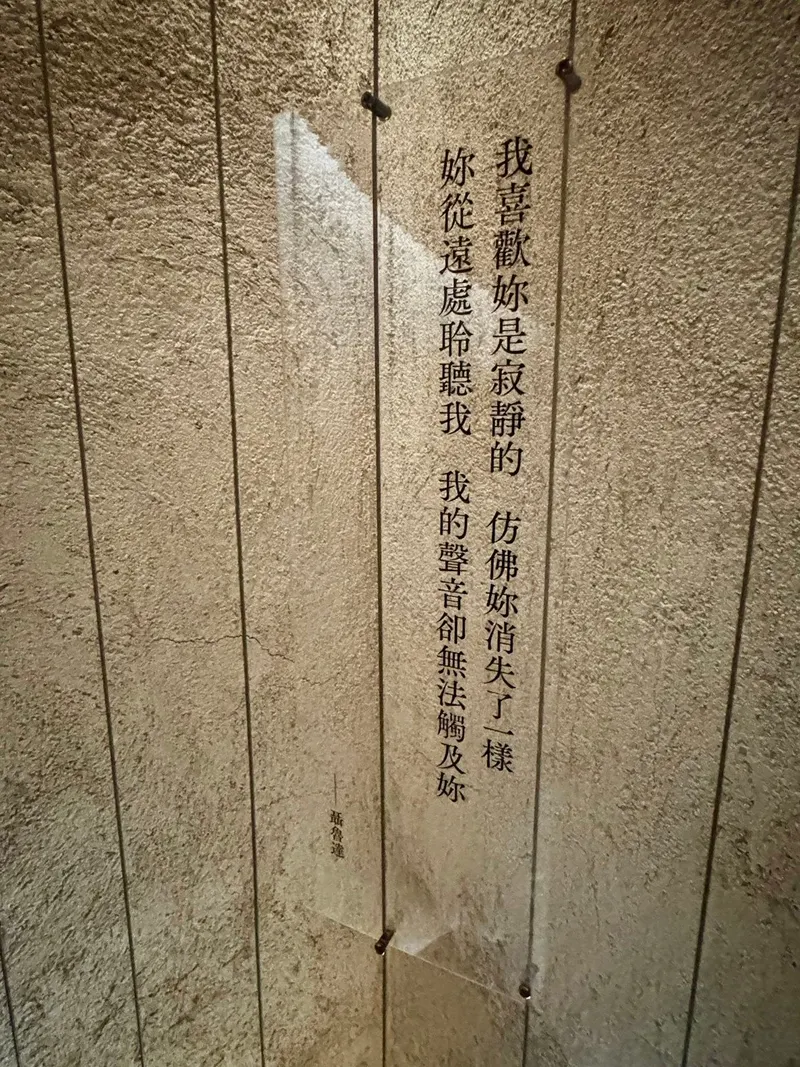 我喜歡妳是寂靜的　仿佛妳消失了一樣
妳從遠處聆聽我　我的聲音卻無法觸及妳
——聶魯達